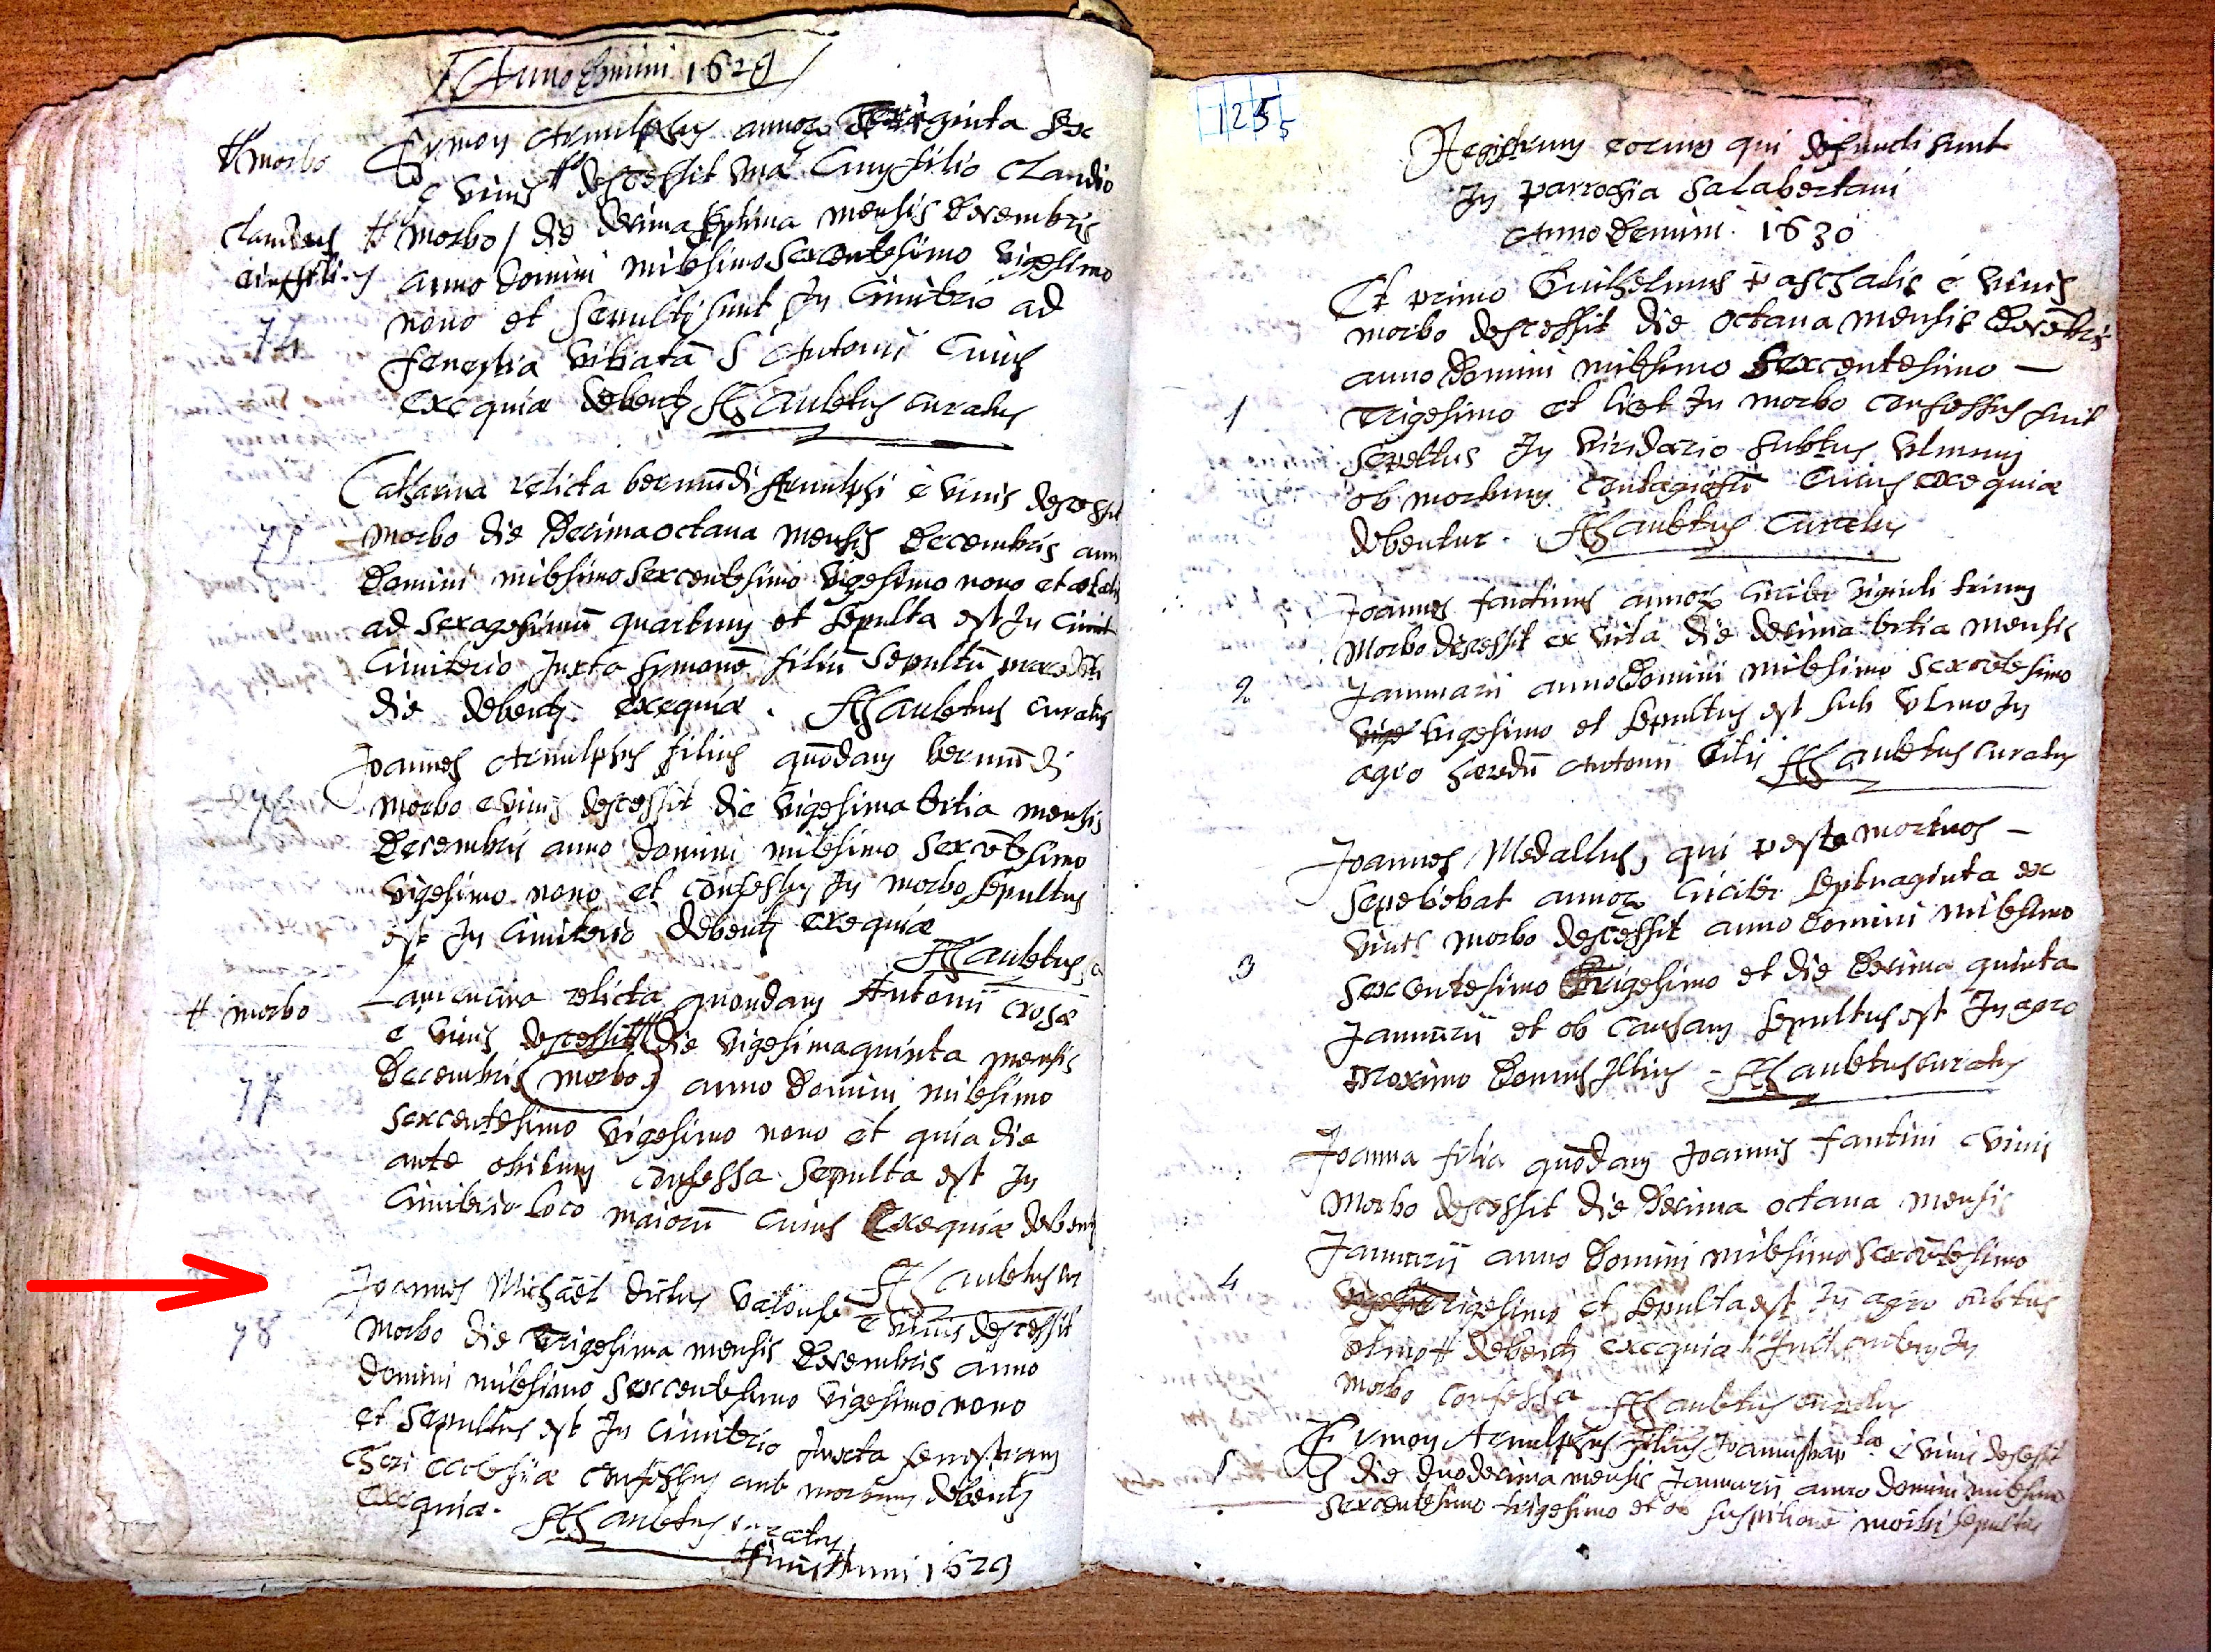 Anno Domini 1629
# morbo
Symon Arnulphus annorȝ Trginta sex
e vivis # decessit una Cum filio Claudio
Claudius
eius filius
# morbo / die decima septima mensis Decembris
anno Domini milesimo sexcentesimo vigesimo
nono et sepulti sunt In Cimiterio ad
74
fenestra vitiatā S Antonii Cuius
exequiæ debentȝ Aubertus curatus
Catharina relicta bermūdi Arnulphi e vivis decessit
75
morbo die Decimaoctava mensis Decembris ann
Domini milesimo sexcentesimo vigesimo nono et ætatis
ad sexagesimū quartum et sepulta est In Cimit
Cimiterio Juxta symonē filiū sepultū
die debentȝ exequiæ . Aubertus curatus
Joannes Arnulphus filius quōdam bermūdi
76
morbo e vivis decessit die vigesima tertia mensis
Decembris anno Domini milesimo sexcētesimo
vigesimo nono et confessus In morbo sepultus
est In Cimiterio debentȝ exequiæ
Aubertus c
# morbo
relicta quondam Antonii crosæ
e vivis decessit # die vigesimaquinta mensis
Decembris (morbo) anno Domini milesimo
77
sexcentesimo vigesimo nono et quia die
ante obitum confessa sepulta est In
Cimiterio loco maiorū cuius Exequiæ debentȝ
Aubertus cu
Joannes Michaēl dictus e vivis decessit
78
morbo die Trigesima mensis Decembris anno
Domini milesimo sexcentesimo vigesimo nono
et sepultus est In Cimiterio Juxta fenestram
Chori ecclesiæ confessus ante morbum debentȝ
exequiæ. Aubertus curatus
finis Anni 1629
1255
Registrum eorum qui defuncti sunt
In parrochia salabertani
Anno Domini 1630
Et primo Guilhelmus paschalis e vivis
morbo decessit die octava mensis Decēbris
anno Domini milesimo sexcentesimo —
1
Trigesimo et licet In morbo confessus fuit
sepultus In viridario subtus ulmum
ob morbum contagiosū Cuius exequiæ
debentur . Aubertus Curatus
Joannes fantinus annorȝ circiter viginti trium
morbo decessit ex vita die decima tertia mensis
2
Januarii anno Domini milesimo sexcētesimo
vige vigesimo et sepultus est sub ulmo In
agro hæredū Antonii Aubertus curatus
Joannes Medallus, qui peste mortuos —
sepeliebat annorȝ circiter septuaginta ex
vivis morbo decessit anno Domini milesimo
3
sexcentesimo Trigesimo et die Decima quinta
Januarii et ob causam sepultus est In agro
proximo Domus Illius - Aubertus curatus
Joanna filia quōdam Joannis fantini e vivis
morbo decessit die Decima octava mensis
Januarii anno Domini milesimo sexcētesimo
4
Trigesimo et sepulta est In agro subtus
ulmo # debentȝ exequiæ fuit autem In
morbo confessa Aubertus curatus
5
Symon Arnulphus filius e vivis decessit
die duodecima mensis Januarii anno domini milesimo
sexcentesimo trigesimo et ob suspitionē morbi sepultus